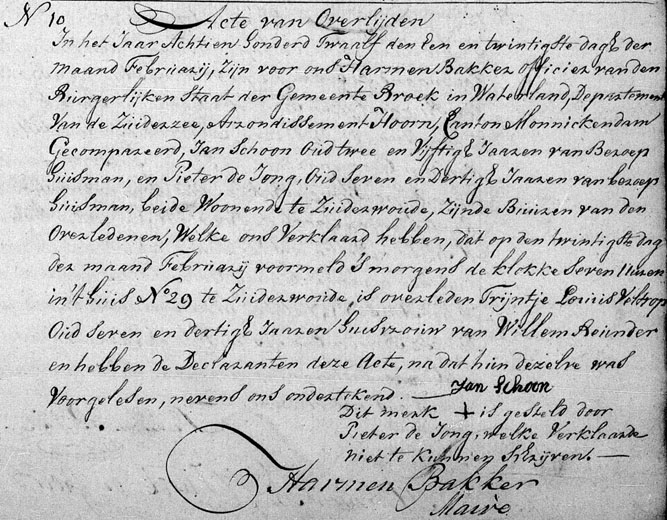 N 10 Acte van Overlijden
In het Jaar Achtien Honderd Twaalf den Een en twintigste dag der
maand Februarij, Zijn voor ons Harmen Bakker officier van den
Burgerlijken Staat der Gemeente Broek in Waterland, Departement
Van de Zuiderzee, Arrondissement Hoorn, Canton Monnickendam
Gecompareerd, Jan Schoon Oud twee en Vijftig Jaaren van Beroep
Huisman, en Pieter de Jong, Oud Seven en Dertig Jaaren van beroep
Huisman, beide Woonende te Zuiderwoude, Zijnde Buuren van den
Overledenen, Welke ons Verklaard hebben, dat op den twintigste dag
der maand Februarij voormeld 's morgens de klokke Seven Uuren
in 't huis No 29 te Zuiderwoude, is overleden Trijntje Louwis
Oud Seven en dertig Jaaren Huisvrouw van Willem Reunder
en hebben de Declaranten deze Acte, na dat hun dezelve was
Voorgelesen, nevens ons ondertekend. Jan Schoon
Dit merk + is gesteld door
Pieter de Jong, welke Verklaarde
niet te kunnen Schrijven.
Harmen Bakker
Maire